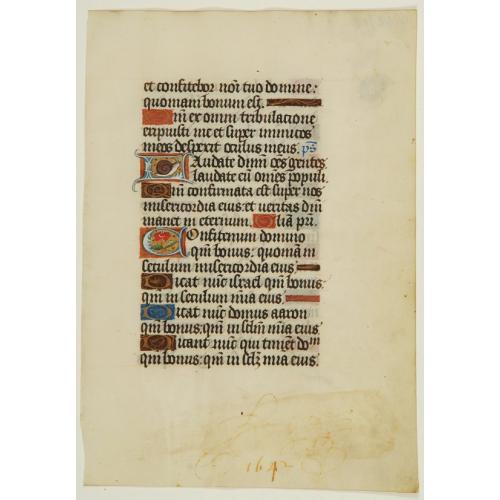 et confitebor noĩ tuo domine:
quoniam bonum est.
Qm̃ ex omni tribulacione
eripuisti me et super inimicos
meos despexit oculus meus. ps̃
Laudate dñm oẽs gentes
laudate eũ omẽs populi.
Qm̃ confirmata est super nos
misericordia eius: et veritas dñi
manet in eternum. Glia pri.
Confitemini domino
qm̃ bonus: quoniam in
seculum misericordia eius
Dicat nũc israel qm̃ bonus:
qm̃ in seculum mĩa eius.
Dicat nũc domus aaron
qm̃ bonus: qm̃ in sclm̃ mĩa eius
Dicant nũc qui timẽt dom
qm̃ bonus: qm̃ in sclm̃ mĩa eius.